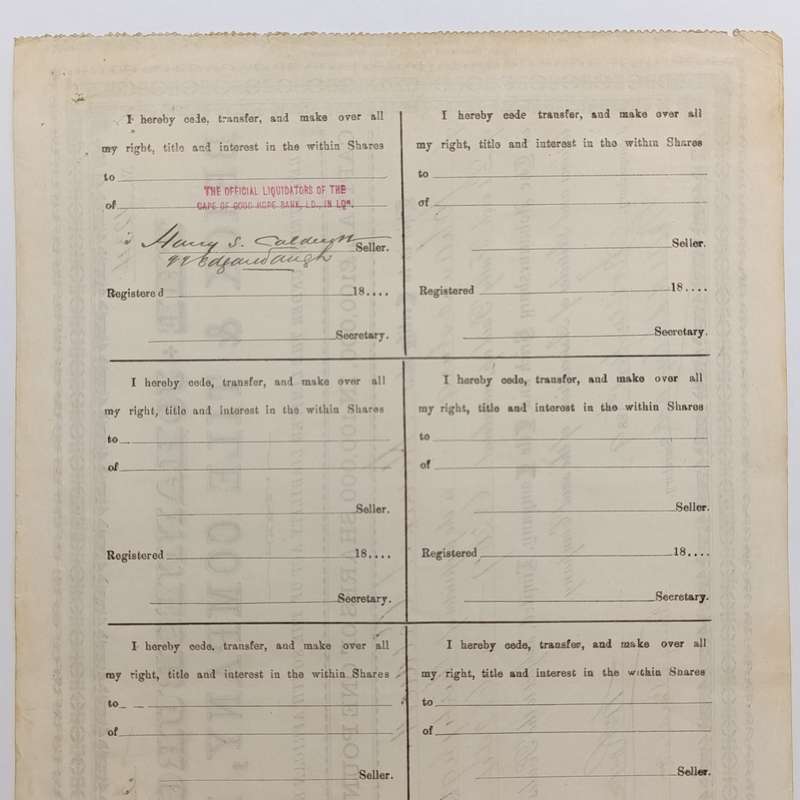 I hereby cede, transfer, and make over all
my right, title and interest in the within Shares
to
THE OFFICIAL LIQUIDATORS OF THE
of CAPE OF GOOD HOPE BANK, LD., IN LQN.
Harry S. Caldecott Seller.
Registered 18....
Secretary.
I hereby cede transfer, and make over all
my right, title and interest in the within Shares
to
of
Seller.
Registered 18....
Secretary.
I hereby cede, transfer, and make over all
my right, title and interest in the within Shares
to
of
Seller.
Registered 18....
Secretary.
I hereby cede, transfer, and make over all
my right, title and interest in the within Shares
to
of
Seller.
Registered 18....
Secretary.
I hereby cede, transfer, and make over all
my right, title and interest in the within Shares
to
of
Seller.
I hereby cede, transfer, and make over all
my right, title and interest in the within Shares
to
of
Seller.